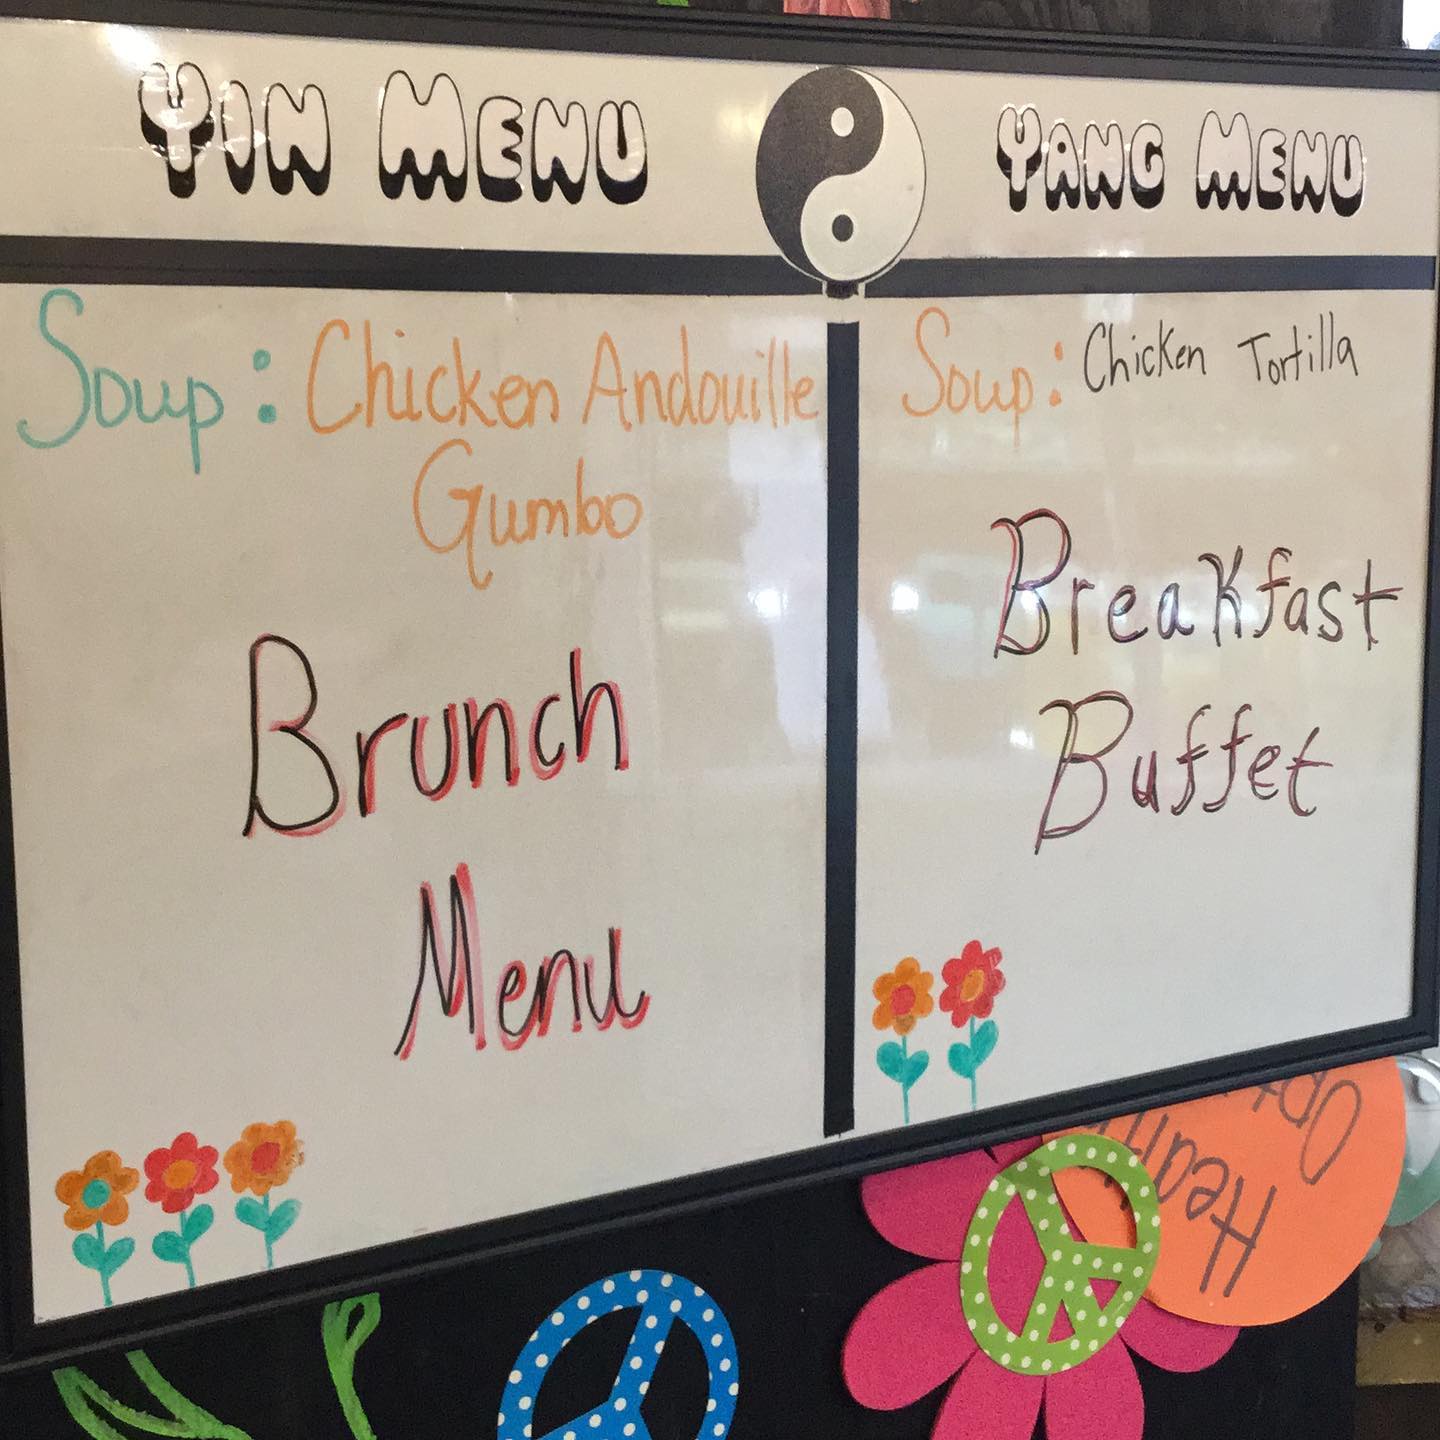 Yin Menu
Yang Menu
Soup: Chicken Andouille
Gumbo
Brunch
Menu
Soup: Chicken Tortilla
Breakfast
Buffet